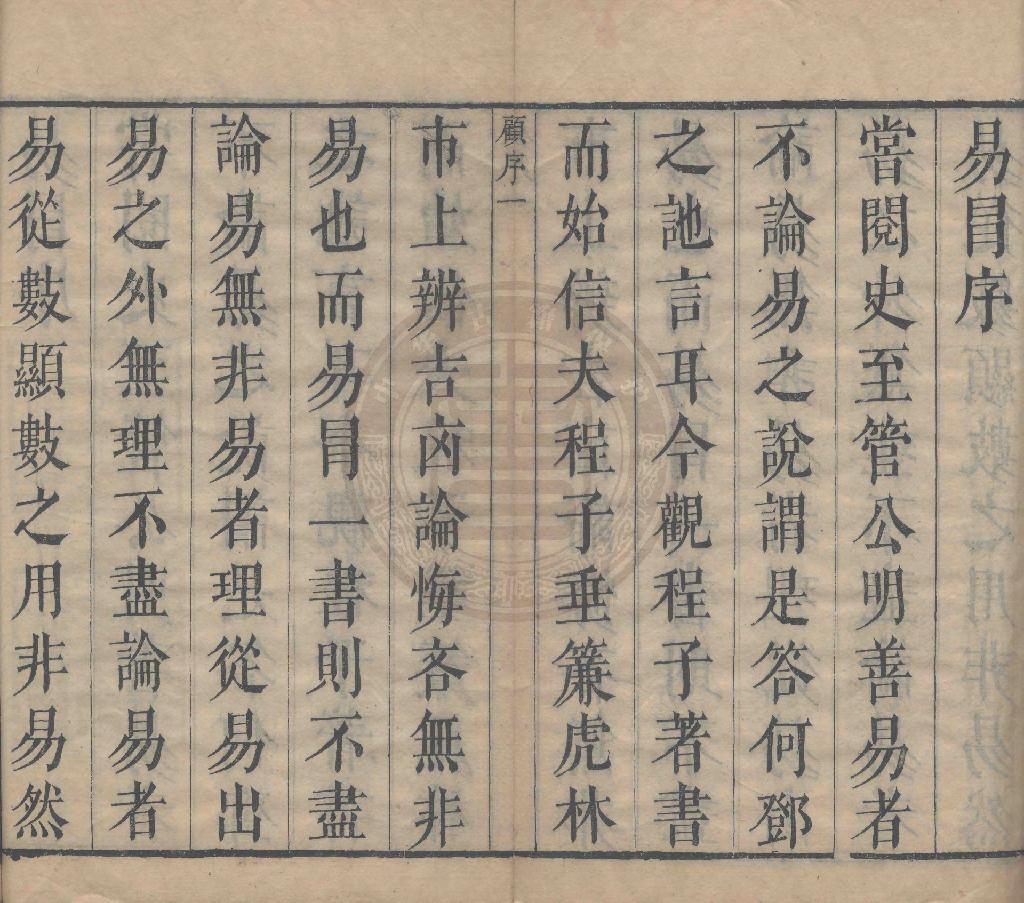 易冒序
嘗閱史至管公明善易者
不論易之說謂是答何鄧
之訑言耳今觀程子著書
而始信夫程子垂簾虎林
顧序一
市上辨吉凶論悔吝無非
易也而易冒一書則不盡
論易無非易者理從易出
易之外無理不盡論易者
易從數顯數之用非易然